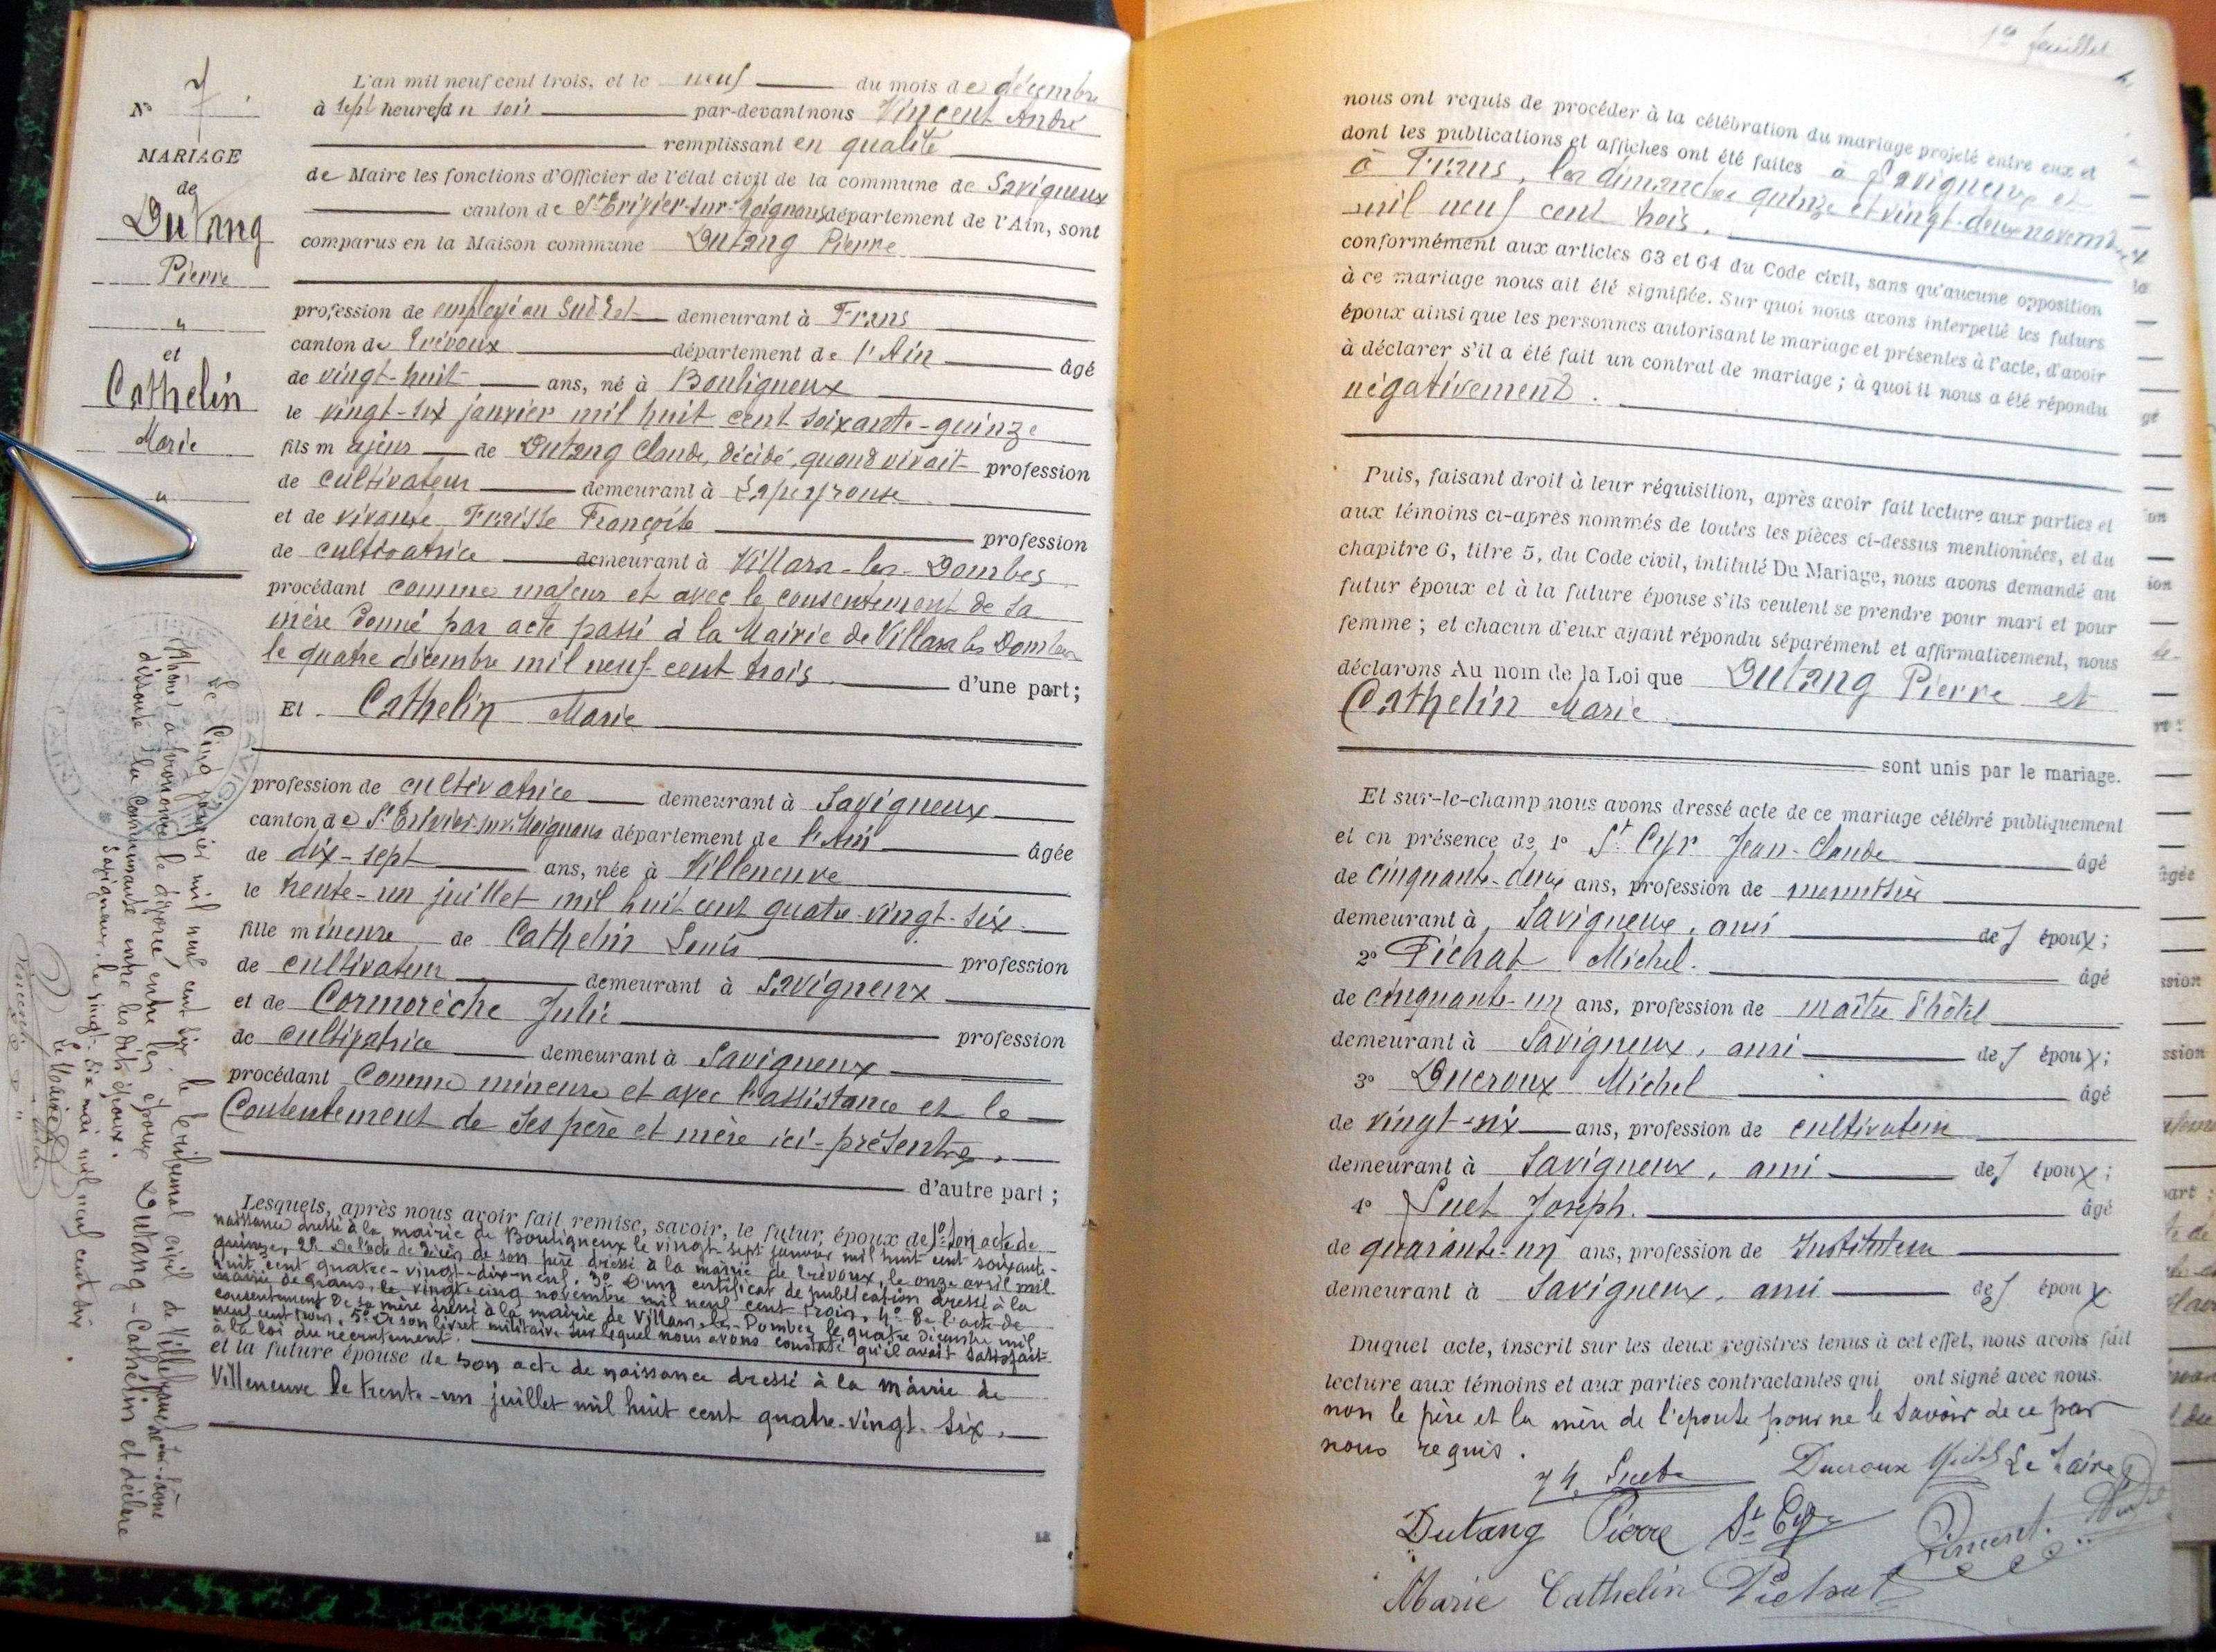 N° 7
MARIAGE
de
Dutang
Pierre
"
et
Cathelin
Marie
"
L'an mil neuf cent trois, et le neuf du mois de décembre
à sept heures du soir par-devant nous Vincent André
remplissant en qualité
de Maire les fonctions d'Officier de l'état civil de la commune de Savigneux
canton de St Trivier-sur-Moignans département de l'Ain, sont
comparus en la Maison commune Dutang Pierre
profession de employé au Sud Est demeurant à Frans
canton de Trévoux département de l'Ain âgé
de vingt-huit ans, né à Bouligneux
le vingt-six janvier mil huit cent soixante-quinze
fils majeur de Dutang Claude, décédé, quand vivait profession
de cultivateur demeurant à Lapeyrouse
et de vivante, Fraisse Françoise profession
de cultivatrice demeurant à Villars-les-Dombes
procédant comme majeur et avec le consentement de sa
mère donné par acte passé à la Mairie de Villars les Dombes
le quatre décembre mil neuf cent trois. d'une part;
Et Cathelin Marie
profession de cultivatrice demeurant à Savigneux
canton de St Trivier-sur-Moignans département de l'Ain âgée
de dix-sept ans, née à Villeneuve
le trente-un juillet mil huit cent quatre-vingt-six
fille mineure de Cathelin Louis profession
de cultivateur demeurant à Savigneux
et de Cormorèche Julie profession
de cultivatrice demeurant à Savigneux
procédant comme mineure et avec l'assistance et le
Consentement de ses père et mère ici-présents.
d'autre part;
Lesquels, après nous avoir fait remise, savoir, le futur, époux de 1° son acte de
naissance dressé à la mairie de Bouligneux le vingt sept janvier mil huit cent soixante-
quinze, 2° De l'acte de décès de son père dressé à la mairie de Trévoux, le onze avril mil
huit cent quatre-vingt-dix-neuf. 3° D'un certificat de publication dressé à la
mairie de Frans, le vingt-cinq novembre mil neuf cent trois, 4° De l'acte de
consentement de sa mère dressé à la mairie de Villars-les-Dombes le quatre décembre mil
neuf cent trois, 5° De son livret militaire sur lequel nous avons constaté qu'il avait satisfait
à la loi du recrutement.
et la future épouse de son acte de naissance dressé à la mairie de
Villeneuve le trente-un juillet mil huit cent quatre-vingt-six.
Le Cinq janvier mil neuf cent six le tribunal civil de Villefranche-sur-Saône
(Rhône) a prononcé le divorce entre les époux Dutang-Cathelin et déclare
dissoute la Communauté entre les dits époux.
Savigneux, le vingt-six mai mil neuf cent six.
Le Maire
1er feuillet
nous ont requis de procéder à la célébration du mariage projeté entre eux et
dont les publications et affiches ont été faites à Savigneux et
à Frans, les dimanches quinze et vingt-deux novembre
mil neuf cent trois.
conformément aux articles 63 et 64 du Code civil, sans qu'aucune opposition
à ce mariage nous ait été signifiée. Sur quoi nous avons interpellé les futurs
époux ainsi que les personnes autorisant le mariage et présentes à l'acte, d'avoir
à déclarer s'il a été fait un contrat de mariage; à quoi il nous a été répondu
négativement.
Puis, faisant droit à leur réquisition, après avoir fait lecture aux parties et
aux témoins ci-après nommés de toutes les pièces ci-dessus mentionnées, et du
chapitre 6, titre 5, du Code civil, intitulé Du Mariage, nous avons demandé au
futur époux et à la future épouse s'ils veulent se prendre pour mari et pour
femme; et chacun d'eux ayant répondu séparément et affirmativement, nous
déclarons Au nom de la Loi que Dutang Pierre et
Cathelin Marie
sont unis par le mariage.
Et sur-le-champ nous avons dressé acte de ce mariage célébré publiquement
et en présence de 1° St Cyr Jean-Claude âgé
de cinquante-deux ans, profession de menuisier
demeurant à Savigneux, ami des époux;
2° Pichat Michel. âgé
de cinquante-un ans, profession de maître d'hôtel
demeurant à Savigneux, ami des époux;
3° Ducroux Michel âgé
de vingt-six ans, profession de cultivateur
demeurant à Savigneux, ami des époux;
4° Suet Joseph. âgé
de quarante-un ans, profession de Instituteur
demeurant à Savigneux, ami des époux
Duquel acte, inscrit sur les deux registres tenus à cet effet, nous avons fait
lecture aux témoins et aux parties contractantes qui ont signé avec nous.
non le père et la mère de l'épouse pour ne le savoir de ce par
nous requis.
Suet Ducroux Michel Le Maire
Dutang Pierre St Cyr Vincent André
Marie Cathelin Pichat